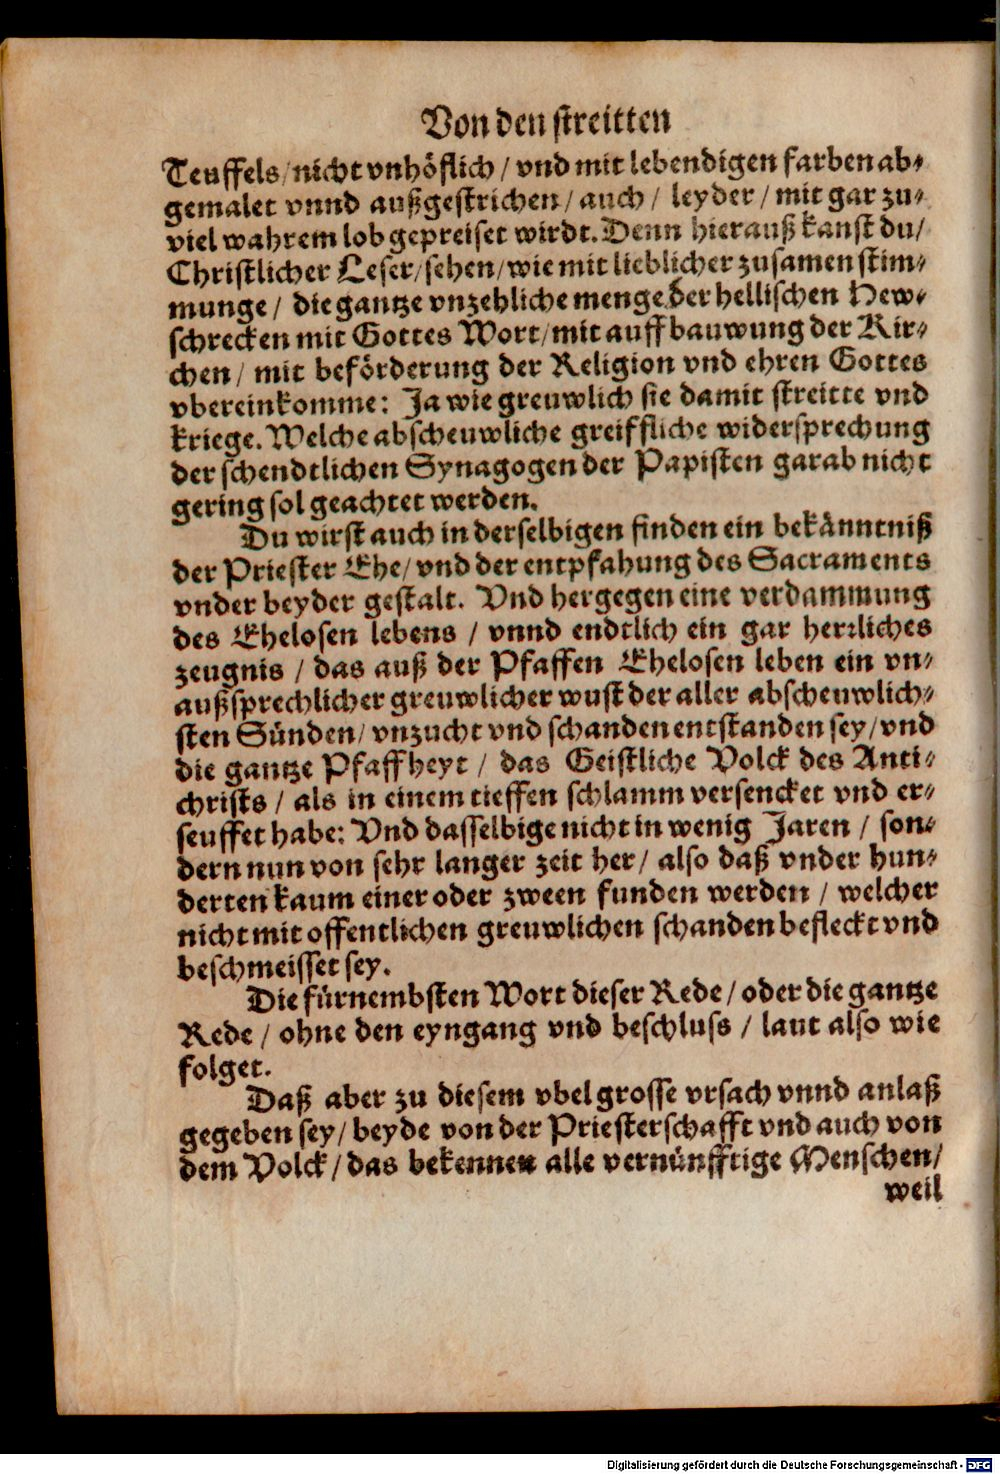 Von den streitten
Teuffels/nicht vnhöflich/vnd mit lebendigen farben ab-
gemalet vnnd außgestrichen/auch/ leyder/mit gar zu-
viel wahrem lob gepreiset wirdt. Denn hierauß kanst du/
Christlicher Leser/sehen/wie mit lieblicher zusamen stim-
munge/ die gantze vnzehliche menge der hellischen Hew-
schrecken mit Gottes Wort/mit auffbauwung der Kir-
chen/ mit beförderung der Religion vnd ehren Gottes
vbereinkomme: Ja wie greuwlich sie damit streitte vnd
kriege. Welche abscheuwliche greiffliche widersprechung
der schendtlichen Synagogen der Papisten gar ab nicht
gering sol geachtet werden.
Du wirst auch in derselbigen finden ein bekänntniß
der Priester Ehe/vnd der entpfahung des Sacraments
vnder beyder gestalt. Vnd hergegen eine verdammung
des Ehelosen lebens / vnnd endtlich ein gar herrliches
zeugnis / das auß der Pfaffen Ehelosen leben ein vn-
außsprechlicher greuwlicher wust der aller abscheuwlich-
sten Sünden/vnzucht vnd schanden entstanden sey/vnd
die gantze Pfaffheyt / das Geistliche Volck des Anti-
christs / als in einem tieffen schlamm versencket vnd er-
seuffet habe: Vnd dasselbige nicht in wenig Jaren / son-
dern nun von sehr langer zeit her/ also daß vnder hun-
derten kaum einer oder zween funden werden / welcher
nicht mit offentlichen greuwlichen schanden befleckt vnd
beschmeisset sey.
Die fürnembsten Wort dieser Rede/oder die gantze
Rede/ ohne den eyngang vnd beschluss / laut also wie
folget.
Daß aber zu diesem vbel grosse vrsach vnnd anlaß
gegeben sey/beyde von der Priesterschafft vnd auch von
dem Volck/das bekennen alle vernünfftige Menschen/
weil
Digitalisierung gefördert durch die Deutsche Forschungsgemeinschaft - DFG